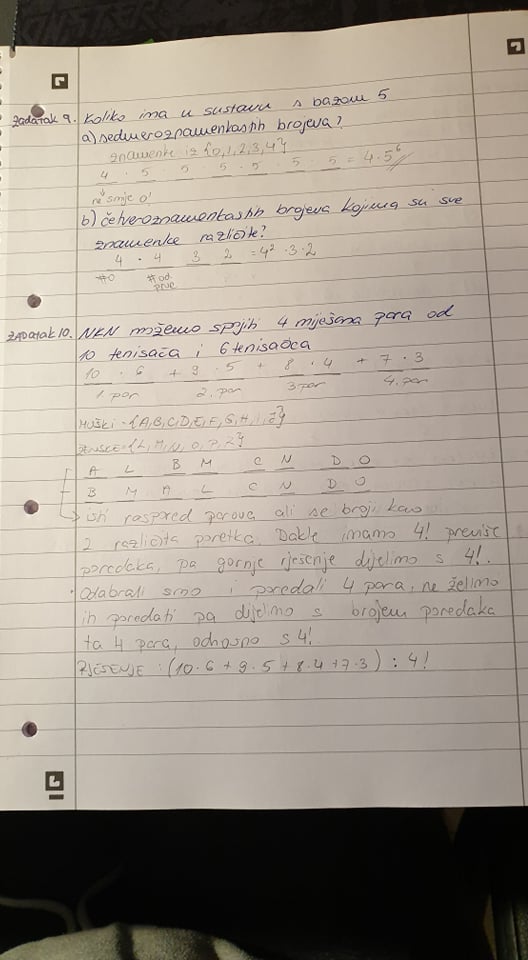 Zadatak 9. Koliko ima u sustavu s bazom 5
a) sedmeroznamenkastih brojeva?
znamenke iz {0,1,2,3,4}
4 · 5 · 5 · 5 · 5 · 5 · 5 = 4·5⁶
ne smije 0!
b) četveroznamenkastih brojeva kojima su sve
znamenke različite?
4 · 4 3 2 = 4²·3·2
≠0 ≠od prve
ZADATAK 10. NKN možemo spojiti 4 mješana para od
10 tenisača i 6 tenisačica
10 · 6 + 9 · 5 + 8 · 4 + 7 · 3
1. par 2. par 3. par 4. par
MUŠKI = {A,B,C,D,E,F,G,H,I,J}
ŽENSKE = {L, M, N, O, P, Z}
A L B M C N D O
B M A L C N D O
isti raspored parova ali se broji kao
2 različita poretka. Dakle imamo 4! previše
poredaka, pa gornje rješenje dijelimo s 4!.
· Odabrali smo i poredali 4 para, ne želimo
ih poredati pa dijelimo s brojem poredaka
ta 4 para, odnosno s 4!
RJEŠENJE : (10·6 + 9·5 + 8·4 + 7·3) : 4!